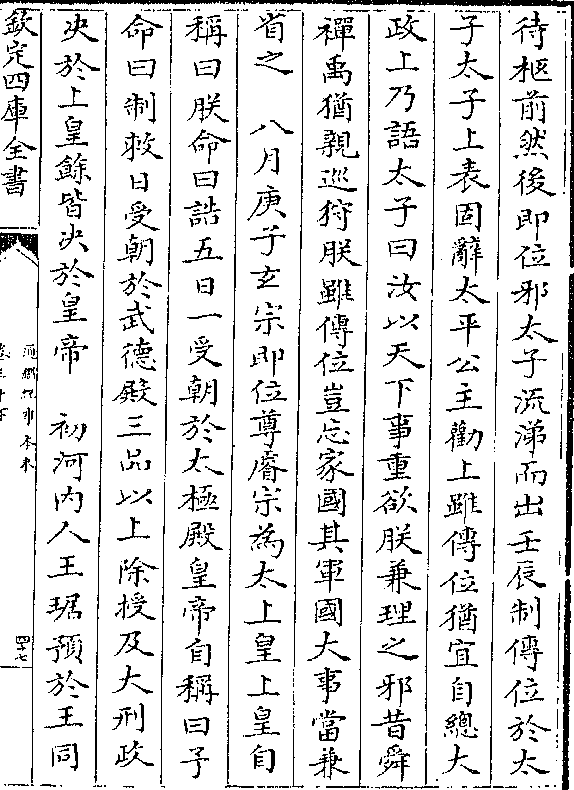 待柩前然後即位邪太子流涕而出壬辰制傳位於太
子太子上表固辭太平公主勸上雖傳位猶宜自總大
政上乃語太子曰汝以天下事重欲朕兼理之邪昔舜
禪禹猶親巡狩朕雖傳位豈忘家國其軍國大事當兼
省之　八月庚子玄宗即位尊睿宗為太上皇上皇自
稱曰朕命曰誥五日一受朝於太極殿皇帝自稱曰予
命曰制敕日受朝於武德殿三品以上除授及大刑政
決於上皇餘皆決於皇帝　初河內人王琚預於王同
欽定四庫全書
通鑑紀事本末
四十七